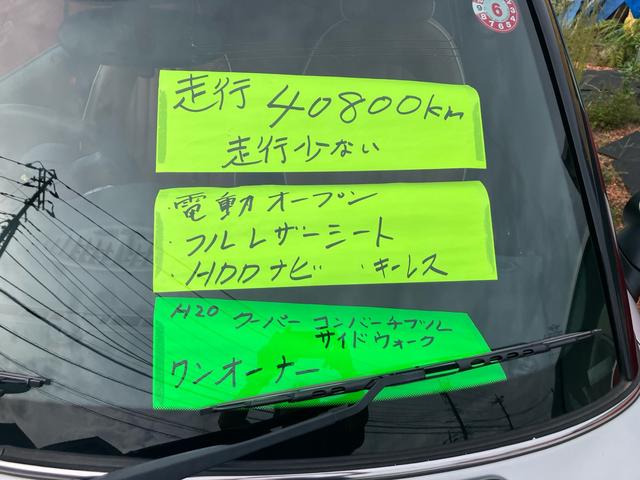 走行 40800km
走行少ない
・電動オープン
・フルレザーシート
・HDDナビ ・キーレス
H20 クーパー コンバーチブル
サイドウォーク
ワンオーナー
6